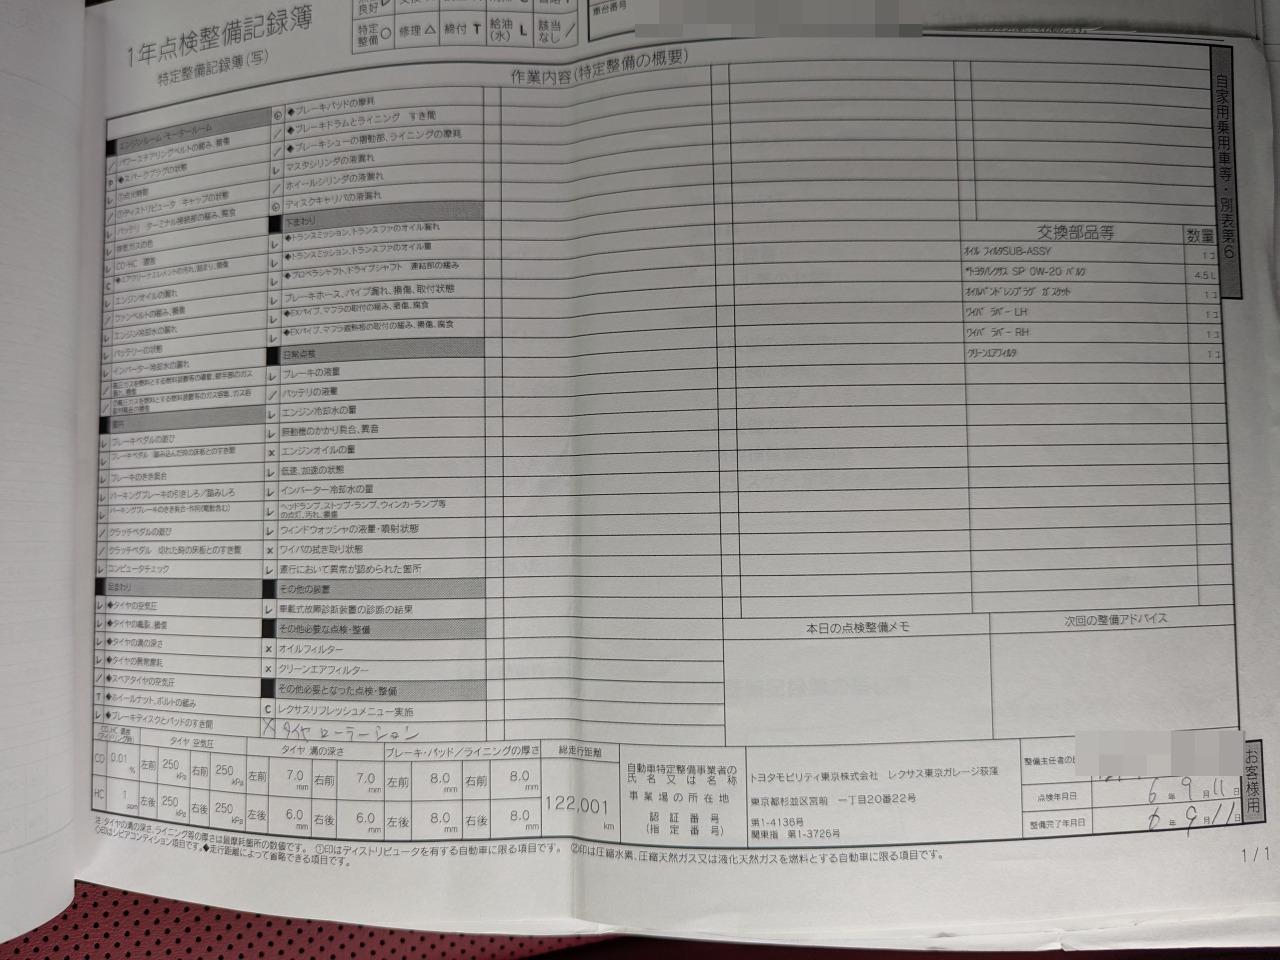 1年点検整備記録簿
特定整備記録簿(写)
良好 レ
特定整備 ○ 修理 △ 締付 T 給油(水) L 該当なし /
車台番号
作業内容(特定整備の概要)
自家用乗用車等・別表第6
エンジンルーム・モータールーム
/ パワーステアリングベルトの緩み、損傷
P ◆スパークプラグの状態
レ ①点火時期
/ ①ディストリビュータ キャップの状態
レ バッテリ ターミナル接続部の緩み、腐食
レ 排気ガスの色
レ CO・HC 濃度
C ◆エアクリーナエレメントの汚れ、詰まり、損傷
レ エンジンオイルの漏れ
/ ファンベルトの緩み、損傷
レ エンジン冷却水の漏れ
レ バッテリーの状態
レ インバーター冷却水の漏れ
室内
レ ブレーキペダルの遊び
レ ブレーキペダル 踏み込んだ時の床板とのすき間
レ ブレーキのきき具合
レ パーキングブレーキの引きしろ/踏みしろ
レ パーキングブレーキのきき具合・作用(電動含む)
/ クラッチペダルの遊び
/ クラッチペダル 切れた時の床板とのすき間
レ コンピュータチェック
足まわり
レ ◆タイヤの空気圧
レ ◆タイヤの亀裂、損傷
レ ◆タイヤの溝の深さ
レ ◆タイヤの異常摩耗
/ ◆スペアタイヤの空気圧
T ◆ホイールナット、ボルトの緩み
レ ◆ブレーキディスクとパッドのすき間
◆ブレーキパッドの摩耗
/ ◆ブレーキドラムとライニング すき間
/ ◆ブレーキシューの摺動部、ライニングの摩耗
レ マスタシリンダの液漏れ
/ ホイールシリンダの液漏れ
ディスクキャリパの液漏れ
下まわり
レ ◆トランスミッション、トランスファのオイル漏れ
レ ◆トランスミッション、トランスファのオイル量
レ ◆プロペラシャフト、ドライブシャフト 連結部の緩み
レ ブレーキホース、パイプ漏れ、損傷、取付状態
レ ◆EXパイプ、マフラの取付の緩み、損傷、腐食
レ ◆EXパイプ、マフラ遮熱板の取付の緩み、損傷、腐食
日常点検
レ ブレーキの液量
/ バッテリの液量
レ エンジン冷却水の量
レ 原動機のかかり具合、異音
× エンジンオイルの量
レ 低速、加速の状態
レ インバーター冷却水の量
レ ヘッドランプ、ストップ・ランプ、ウィンカ・ランプ等の点灯、汚れ、損傷
レ ウインドウォッシャの液量・噴射状態
× ワイパの拭き取り状態
レ 運行において異常が認められた箇所
その他の装置
レ 車載式故障診断装置の診断の結果
その他必要な点検・整備
× オイルフィルター
× クリーンエアフィルター
その他必要となった点検・整備
C レクサスリフレッシュメニュー実施
× タイヤローテーション
交換部品等 数量
オイル フィルタSUB-ASSY 1コ
*トヨタ/レクサス SP 0W-20 バルク 4.5L
オイルパンドレンプラグ ガスケット 1コ
ワイパ ラバー LH 1コ
ワイパ ラバー RH 1コ
クリーンエアフィルタ 1コ
本日の点検整備メモ
次回の整備アドバイス
CO、HC 濃度(アイドリング時)
CO 0.01 %
HC 1 ppm
タイヤ 空気圧
左前 250 kPa 右前 250 kPa
左後 250 kPa 右後 250 kPa
タイヤ 溝の深さ
左前 7.0 mm 右前 7.0 mm
左後 6.0 mm 右後 6.0 mm
ブレーキ・パッド/ライニングの厚さ
左前 8.0 mm 右前 8.0 mm
左後 8.0 mm 右後 8.0 mm
総走行距離
122,001 km
自動車特定整備事業者の氏名又は名称
トヨタモビリティ東京株式会社 レクサス東京ガレージ荻窪
事業場の所在地
東京都杉並区宮前 一丁目20番22号
認証番号(指定番号)
第1-4136号
関東指 第1-3726号
整備主任者の氏
点検年月日 6年 9月 11日
整備完了年月日 6年 9月 11日
お客様用
注:タイヤの溝の深さ、ライニング等の厚さは最摩耗箇所の数値です。 ①印はディストリビュータを有する自動車に限る項目です。 ②印は圧縮水素、圧縮天然ガス又は液化天然ガスを燃料とする自動車に限る項目です。
○印はシビアコンディション項目です。◆走行距離によって省略できる項目です。
1/1